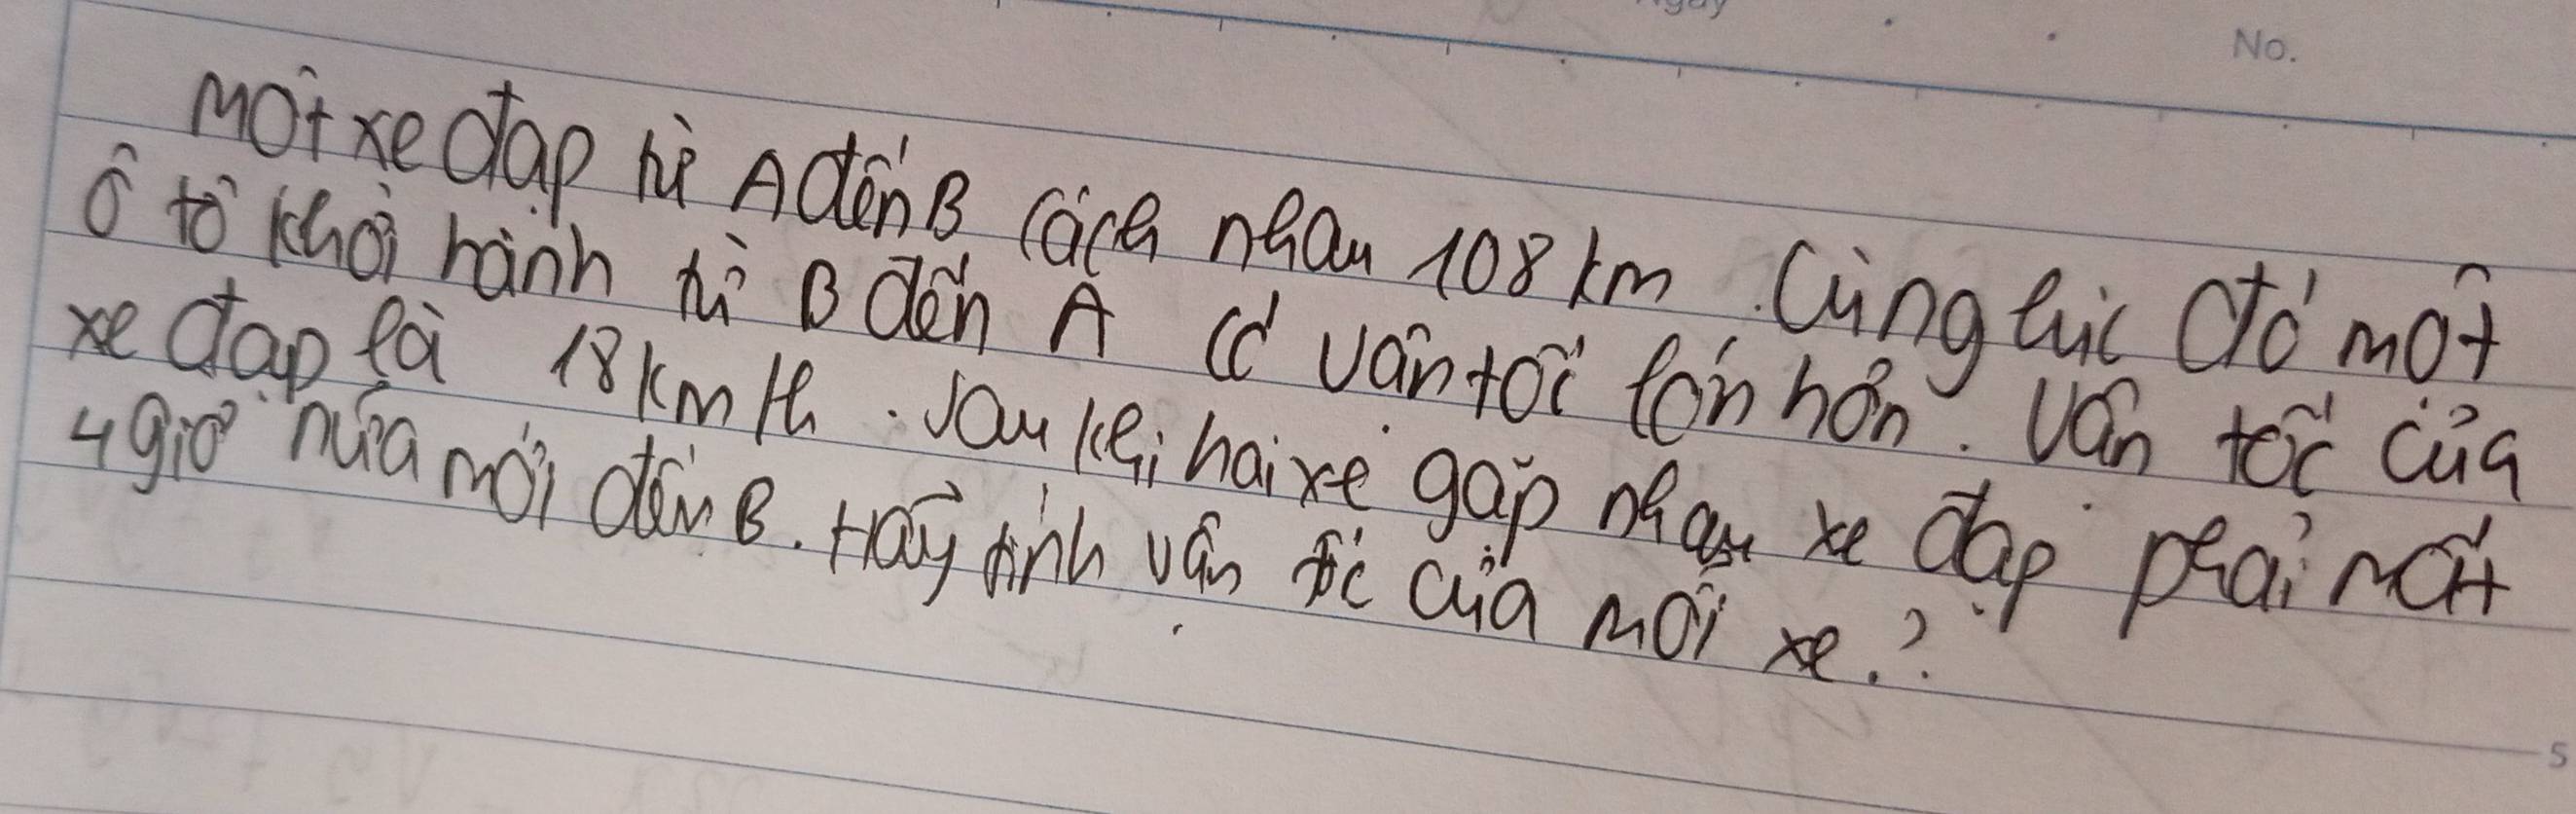 Ngày
No.
Một xe đạp từ A đến B cách nhau 108 km. Cùng lúc đó một
ô tô khởi hành từ B đến A có vận tốc lớn hơn. Vận tốc của
xe đạp là 18 km/h. Sau khi hai xe gặp nhau xe đạp phải mất
4 giờ nữa mới đến B. Hãy tính vận tốc của mỗi xe.?
5